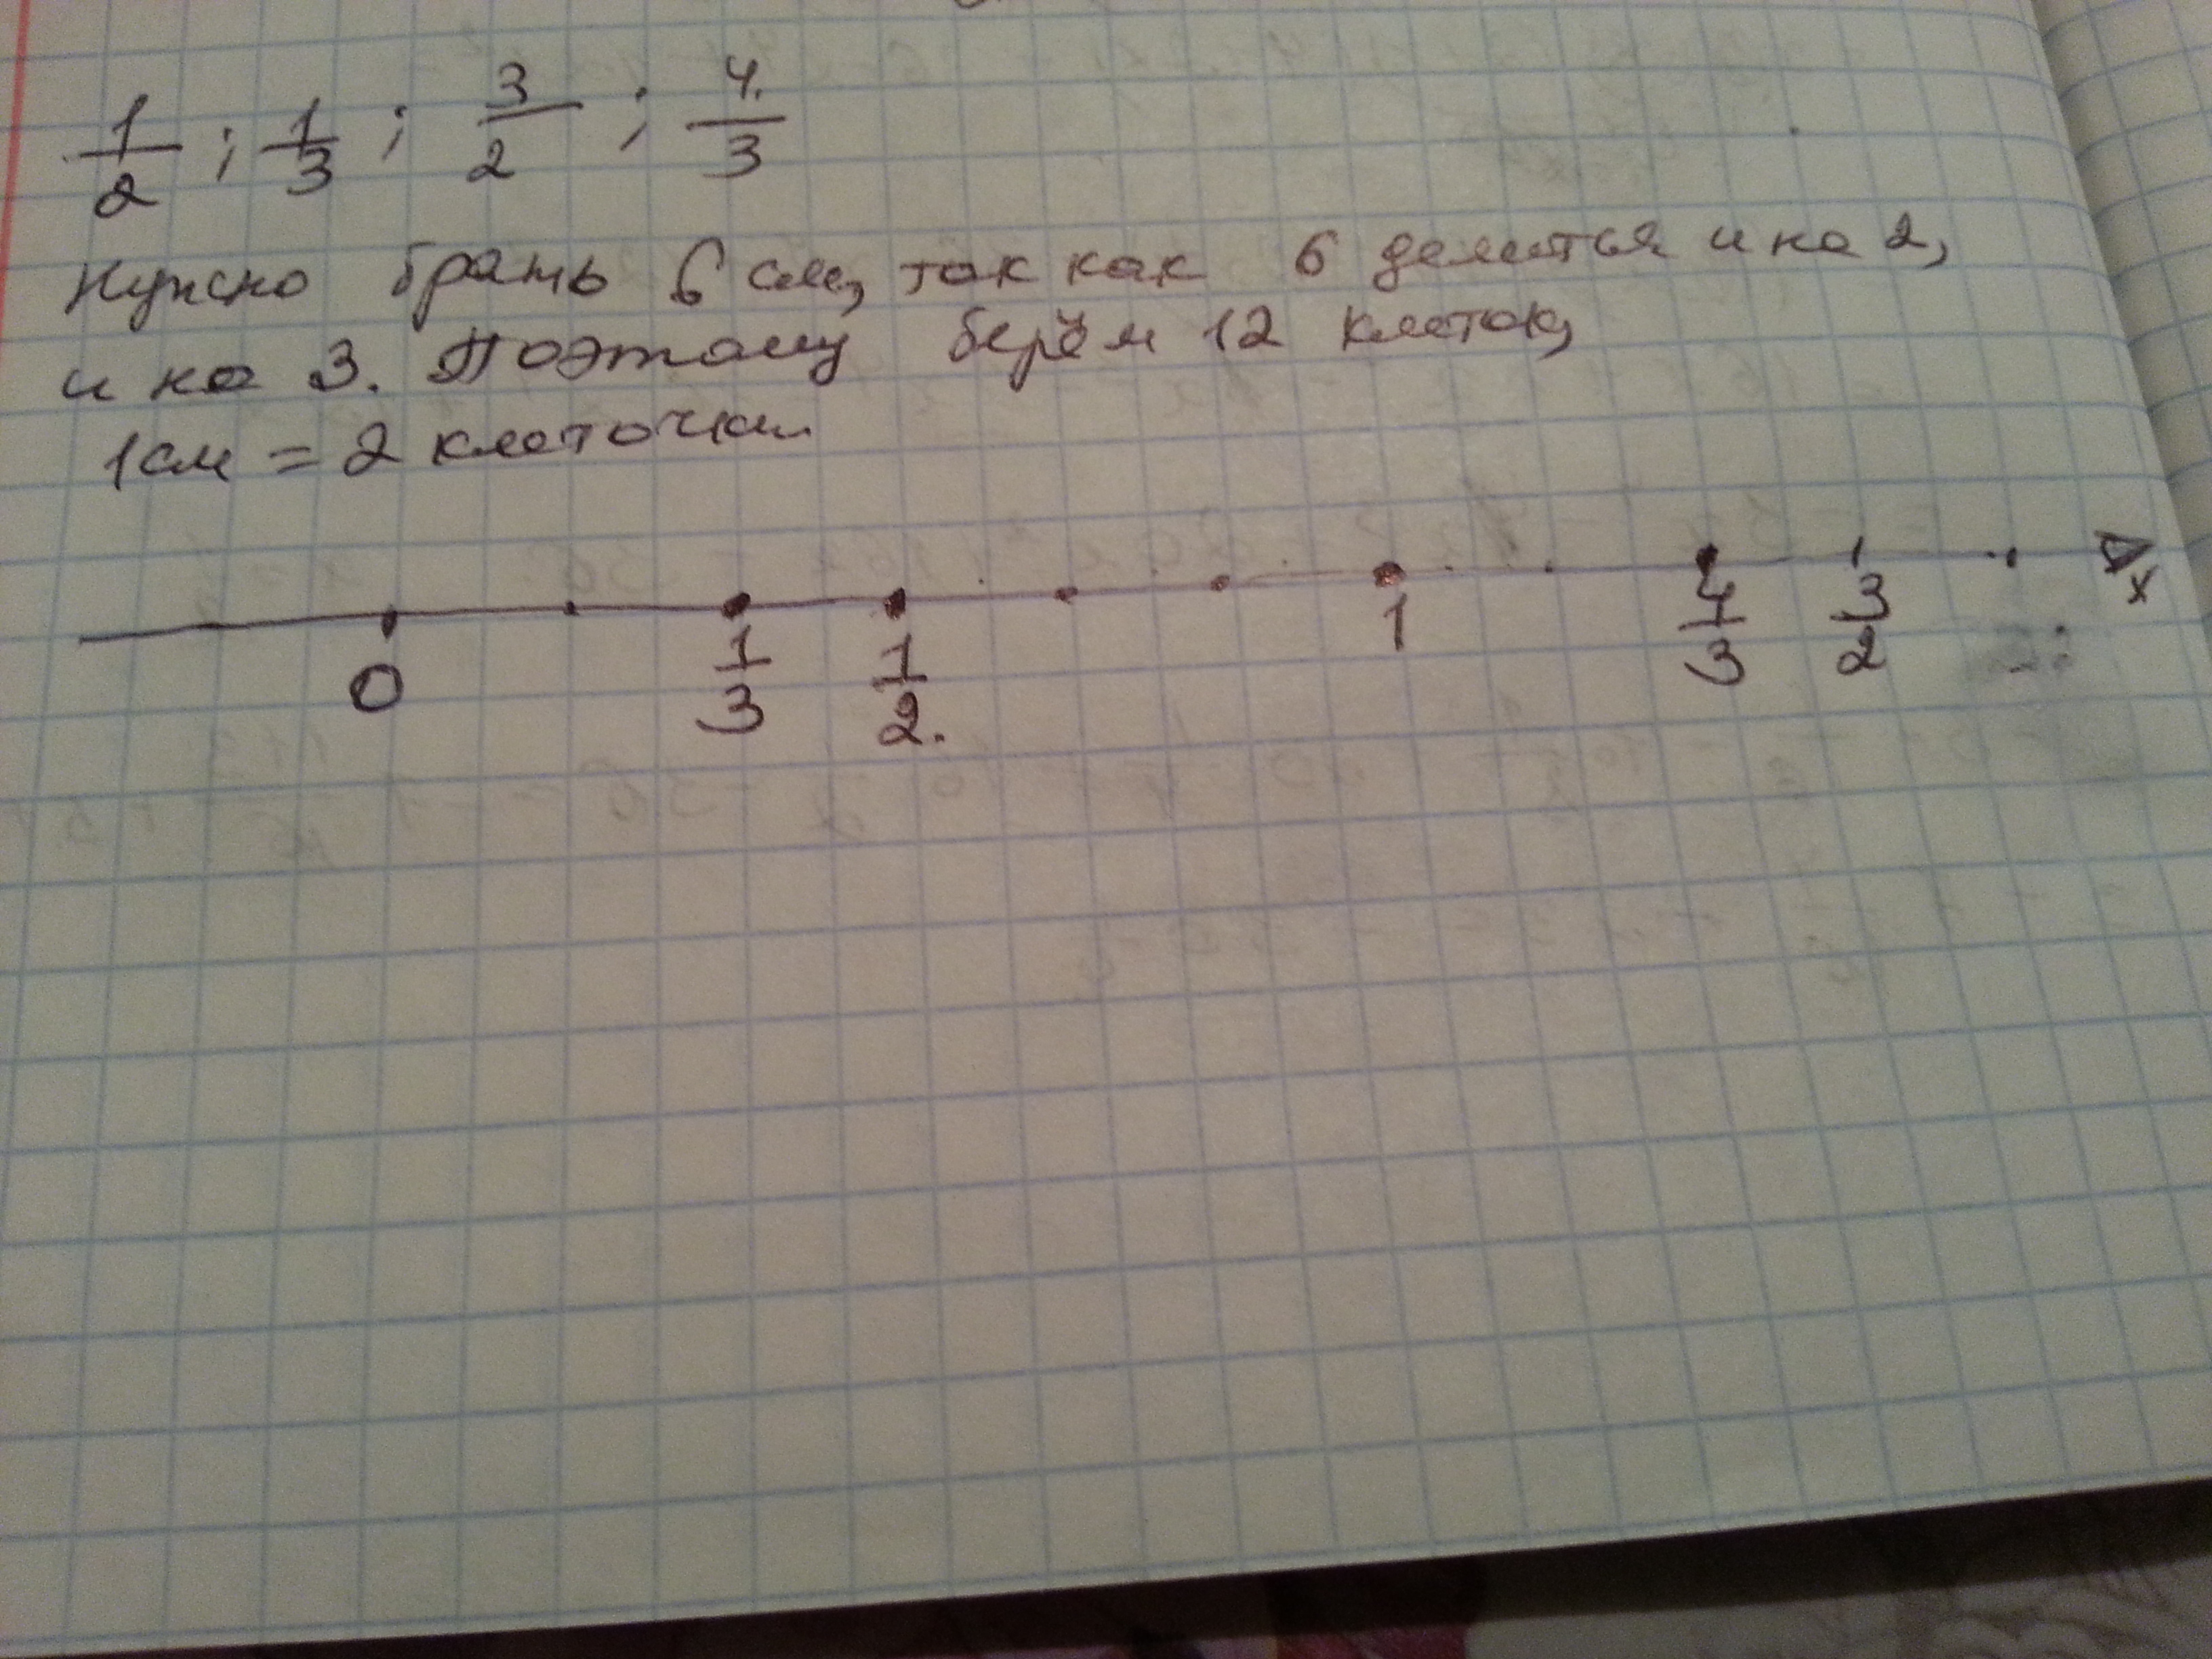 1/2 ; 1/3 ; 3/2 ; 4/3
Нужно брать 6 см, так как 6 делится и на 2,
и на 3. Поэтому берём 12 клеток,
1см = 2 клеточки.
0 1/3 1/2. 1 4/3 3/2 x